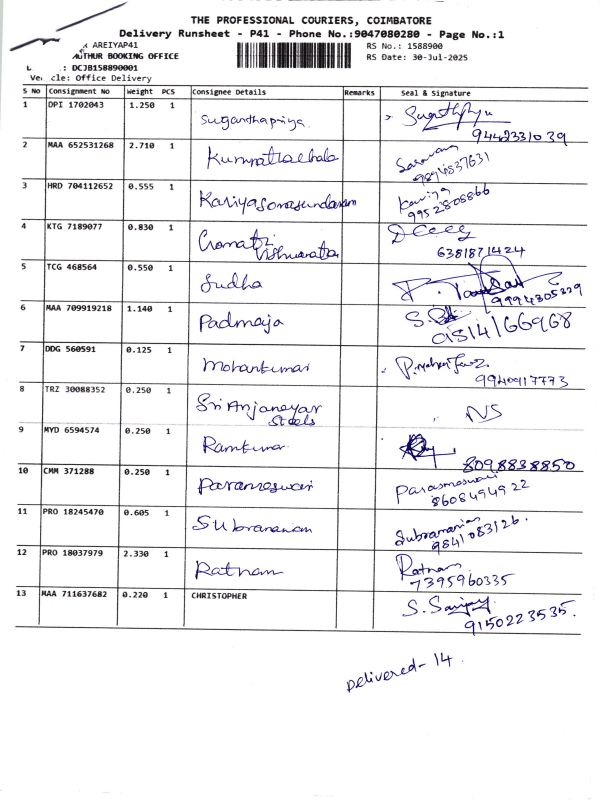 THE PROFESSIONAL COURIERS, COIMBATORE
Delivery Runsheet - P41 - Phone No.:9047080280 - Page No.:1
AREIYAP41 RS No.: 1588900
BOOKING OFFICE RS Date: 30-Jul-2025
: DCJB158890001
Vehicle: Office Delivery
S No Consignment No Weight PCS Consignee Details Remarks Seal & Signature
1 DPI 1702043 1.250 1 Suganthapriya
9442331039
2 MAA 652531268 2.710 1 Saravanan
9894837631
3 HRD 704112652 0.555 1 Kariyasomasundaram Kaviya
9952808866
4 KTG 7189077 0.830 1
6381871424
5 TCG 468564 0.550 1 Sudha
9994305329
6 MAA 709919218 1.140 1 Padmaja
7 DDG 560591 0.125 1 Mohankumar
9940917773
8 TRZ 30088352 0.250 1 Sri Anjaneyar NS
Steels
9 MYD 6594574 0.250 1 Ramkumar
8098838850
10 CMM 371288 0.250 1 Parameswari
8608494922
11 PRO 18245470 0.605 1 Subramaniam Subramanian
9841083126.
12 PRO 18037979 2.330 1 Ratnam Ratnam
7395960335
13 MAA 711637682 0.220 1 CHRISTOPHER S. Sanjay
9150223535.
Delivered - 14.